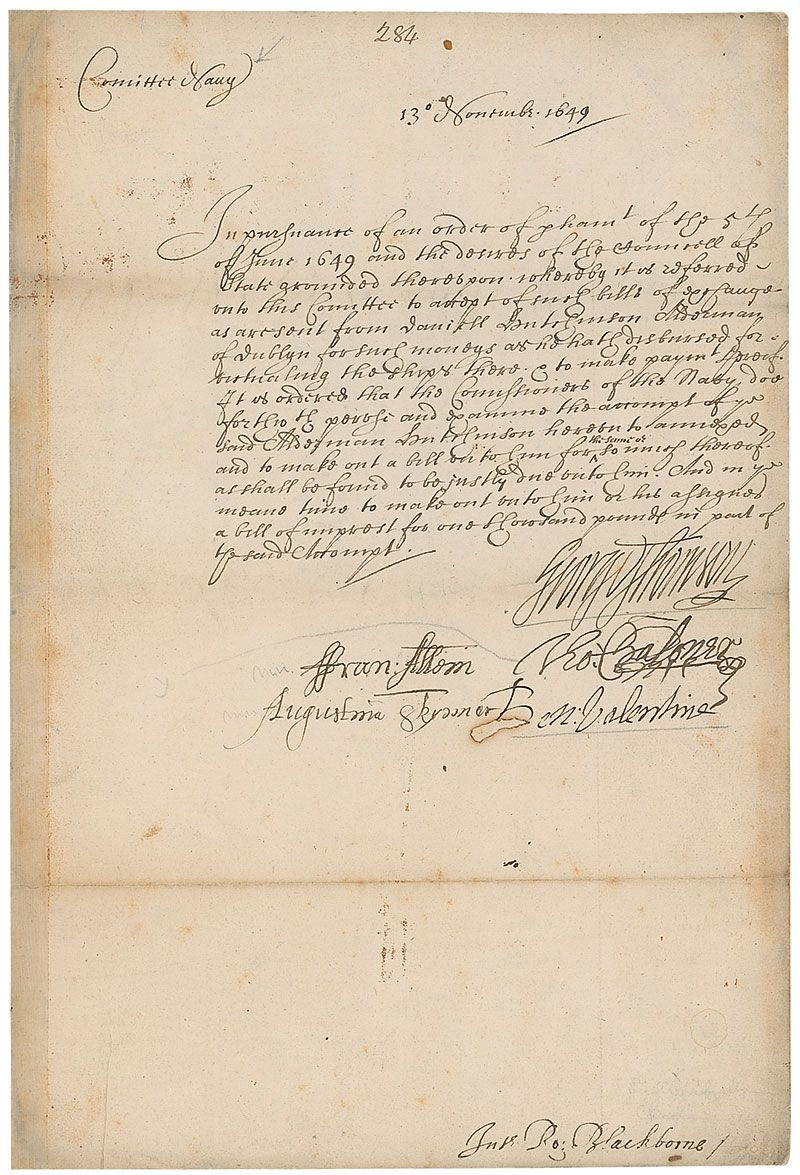 284
Comittee Navy
13° Novembr. 1649
In pursuance of an order of parliamt of the 5th
of June 1649 and the desires of the Councell of
State grounded thereupon whereby it is referred
unto this Comittee to accept of such bills of exchange
as are sent from Daniell Hutchinson Alderman
of Dublyn for such moneys as he hath disbursed for
victualing the ships there & to make paymt thereof.
It is ordered that the Comissioners of the Navy doe
forthwth peruse and examine the accompt of ye
said Alderman Hutchinson hereunto annexed
and to make out a bill unto him for the same or so much thereof
as shall be found to be justly due unto him. And in ye
meane time to make out unto him or his assignes
a bill of imprest for one thousand pounds in part of
the said Accompt.
George Thomson
Ffran: Allein Tho. Chaloner
Augustine Skynner Ben: Valentine
Ro: Blackborne